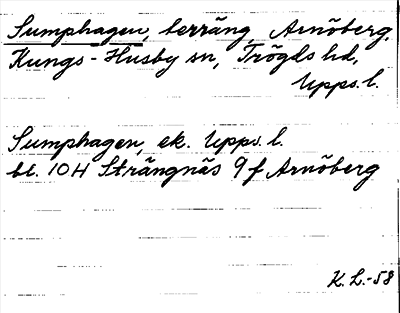 Sumphagen, terräng, Arnöberg,
Kungs-Husby sn, Trögds hd,
Upps. l.
Sumphagen, ek. Upps. l.
bl. 10H Strängnäs 9f Arnöberg
K. L.-58